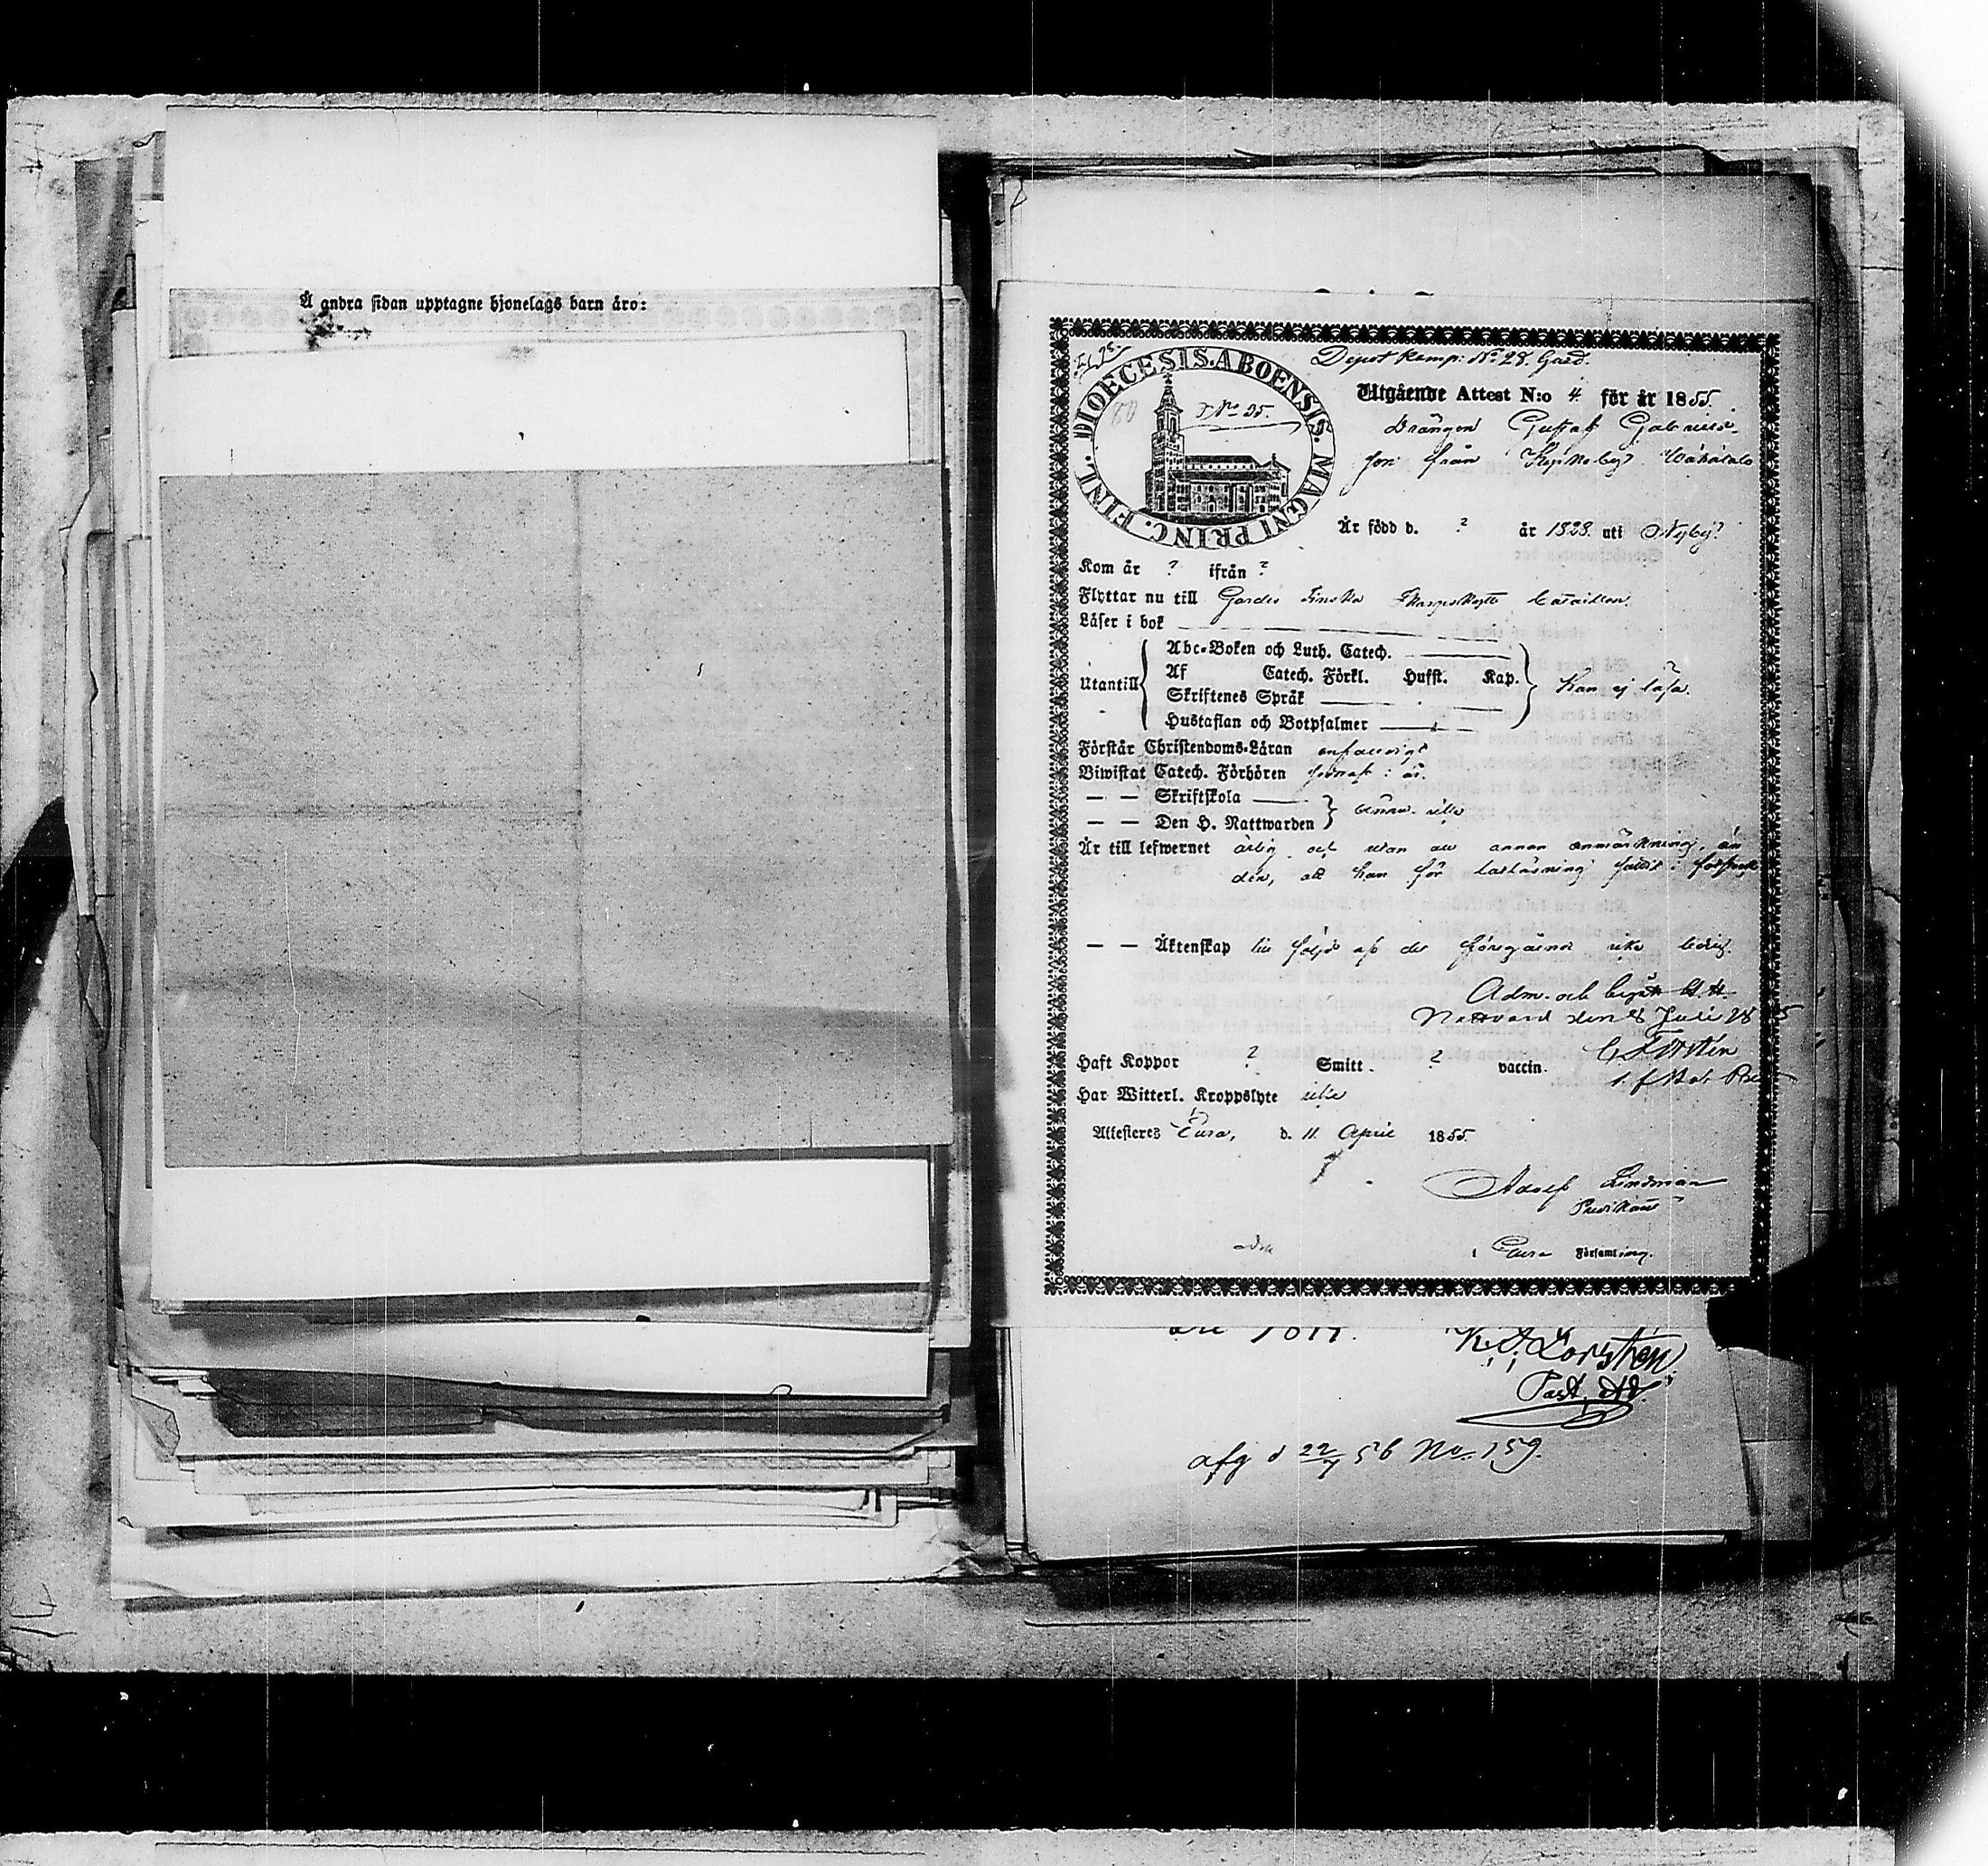 Å andra sidan upptagne hjonelags barn äro:
Depot komp: No 28. Gard.
DIOECESIS. ABOENSIS. MAGNI PRINC. FINL.
80
No 25.
Utgående Attest N:o 4 för år 1855.
Drängen Gustaf Gabriels-
son från
Är född d. ? år 1828. uti Nyby?
Kom år ? ifrån ?
Flyttar nu till Gardes Finska Skarpskytte bataillon.
Läser i bok
Utantill
Abc-Boken och Luth. Catech.
Af Catech. Förkl. Hufst. Kap.
Skriftenes Språk
Hustaflan och Botpsalmer
Kan ej läsa.
Förstår Christendoms-Läran enfaldigt
Biwistat Catech. Förhören
— — Skriftskola
— — Den H. Nattwarden
Är till lefwernet ärlig och utan all annan anmärkning, än
den, att han för
— — Äktenskap till följd af det föregående icke ledig.
Adm. och begått H. H.
Nattvard den 8 Juli 1855
Haft Koppor ? Smitt. ? vaccin.
Har Witterl. Kroppslyte icke
Attesteres Eura, d. 11 April 1855.
Adolf Lindman
Predikant
i Eura Församling.
afg d 22/7 56 No. 159.